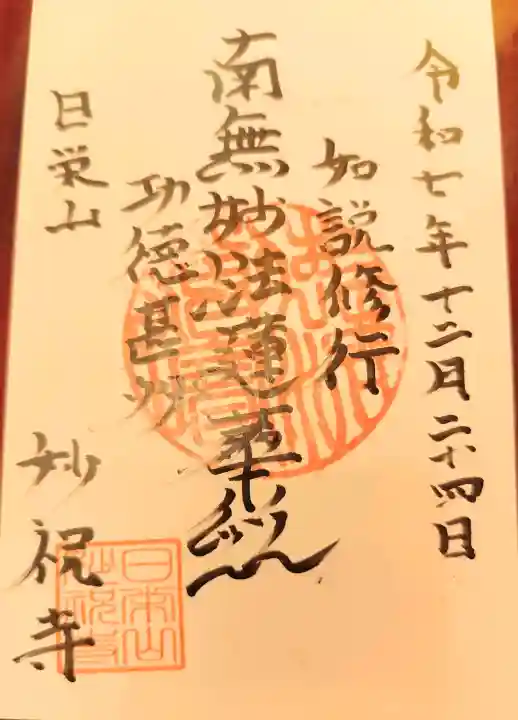 令和七年十二月二十四日
如説修行
南無妙法蓮華経
功徳甚
日栄山
妙祝寺